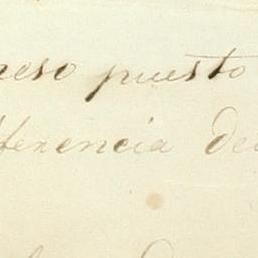 reso puesto
ferencia de